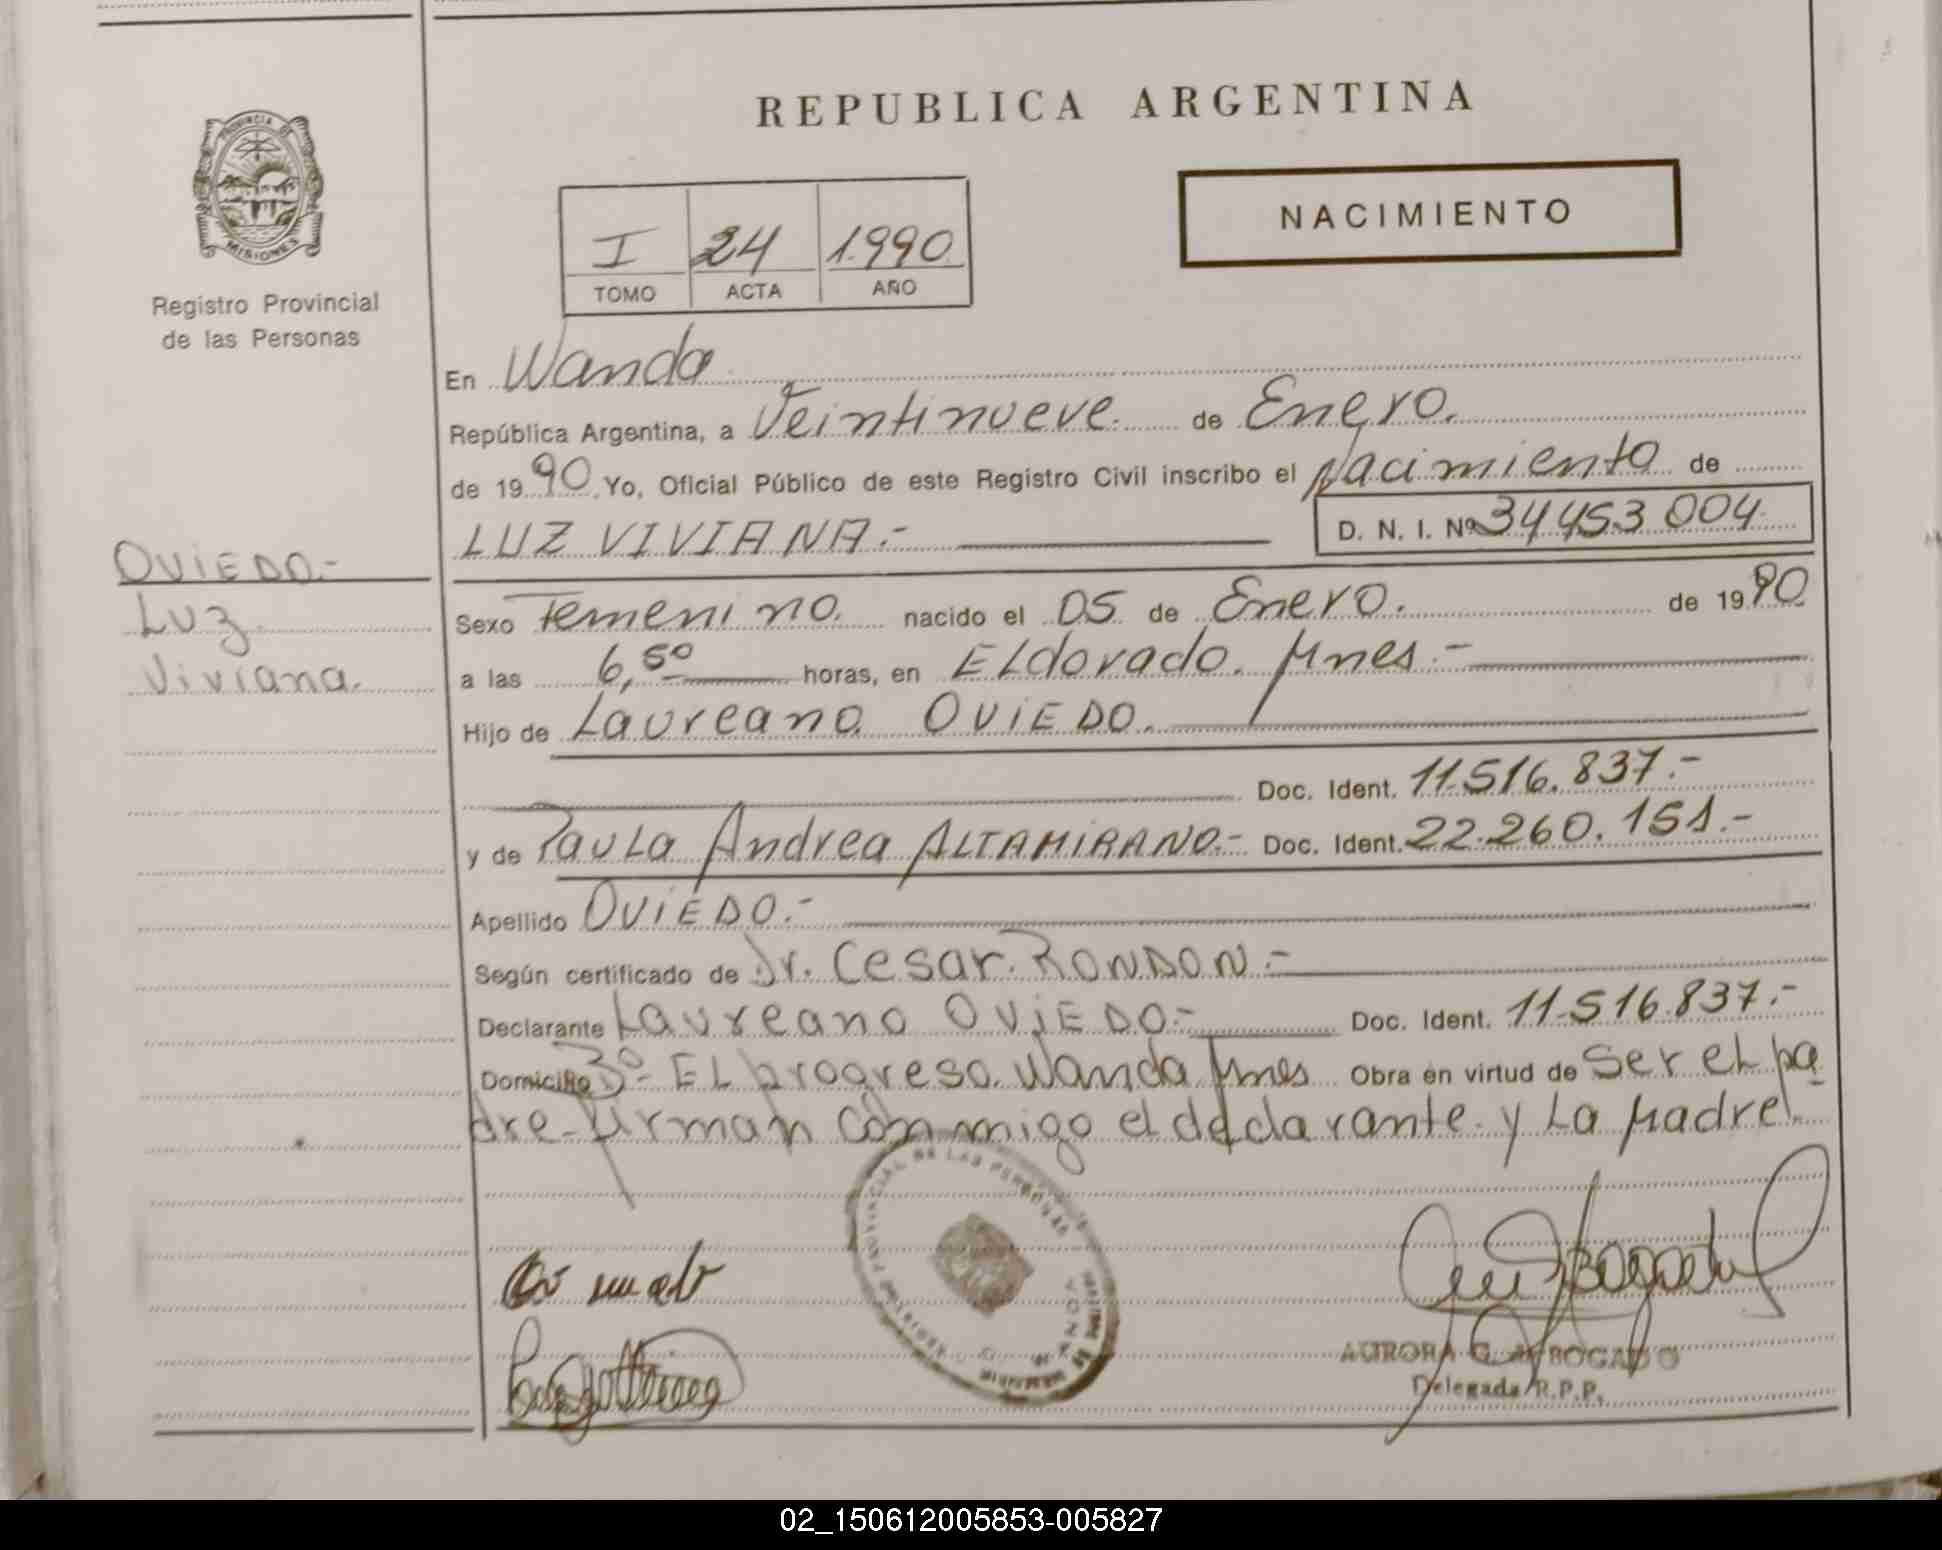 REPUBLICA ARGENTINA
PROVINCIA DE
MISIONES
Registro Provincial
de las Personas
I 24 1.990
TOMO ACTA AÑO
NACIMIENTO
En Wanda
República Argentina, a Veintinueve. de Enero.
de 1990 Yo, Oficial Público de este Registro Civil inscribo el Nacimiento de
LUZ VIVIANA.- D. N. I. Nº 34453004
OVIEDO.-
Luz
Viviana.
Sexo Femenino. nacido el 05 de Enero. de 1990
a las 6,50 horas, en ELdorado. Mnes.-
Hijo de Laureano OVIEDO.
Doc. Ident. 11.516.837.-
y de PauLa Andrea ALTAMIRANO.- Doc. Ident. 22.260.151.-
Apellido OVIEDO.-
Según certificado de Dr. Cesar. RONDON.-
Declarante Laureano OVIEDO.- Doc. Ident. 11.516.837.-
Domicilio Bº- EL progreso. Wanda Mnes Obra en virtud de Ser el pa
dre-Firman conmigo el declarante y La Madre.
PROVINCIAL DE LAS PERSONAS
AURORA G. ABOGADO
Delegada R.P.P.
02_150612005853-005827